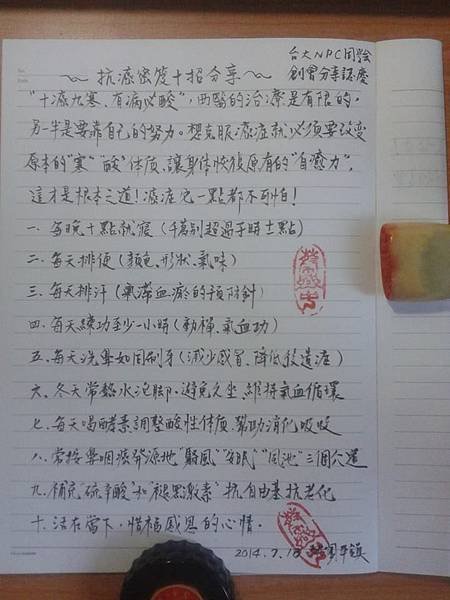 台大NPC同學會
創會分享認癒
～抗癌密笈十招分享～
"十癌九寒、有病必酸"，西醫的治療是有限的，
另一半是要靠自己的努力。想克服癌症就必須要改變
原本的"寒""酸"体质、讓身体恢復原有的"自癒力"，
這才是根本之道！癌症完一點都不可怕！
一、每晚十點就寢（千萬別超過子時十一點）
二、每天排便（顏色、形狀、氣味）
三、每天排汗（氣滯血瘀的預防針）
四、每天練功至少一小時（動禪、氣血功）
五、每天洗鼻如同刷牙（減少感冒、降低鼓譴癌）
六、冬天常熱水泡腳、避免久坐、維持氣血循環
七、每天喝酵素調整酸性体质、幫助消化吸收
八、常按鼻咽癌發源地"翳風""安眠""風池"三個穴道
九、補充"硫辛酸"和"褪黑激素"抗自由基抗老化
十、活在當下，惜福感恩的心情。
2014.7.18